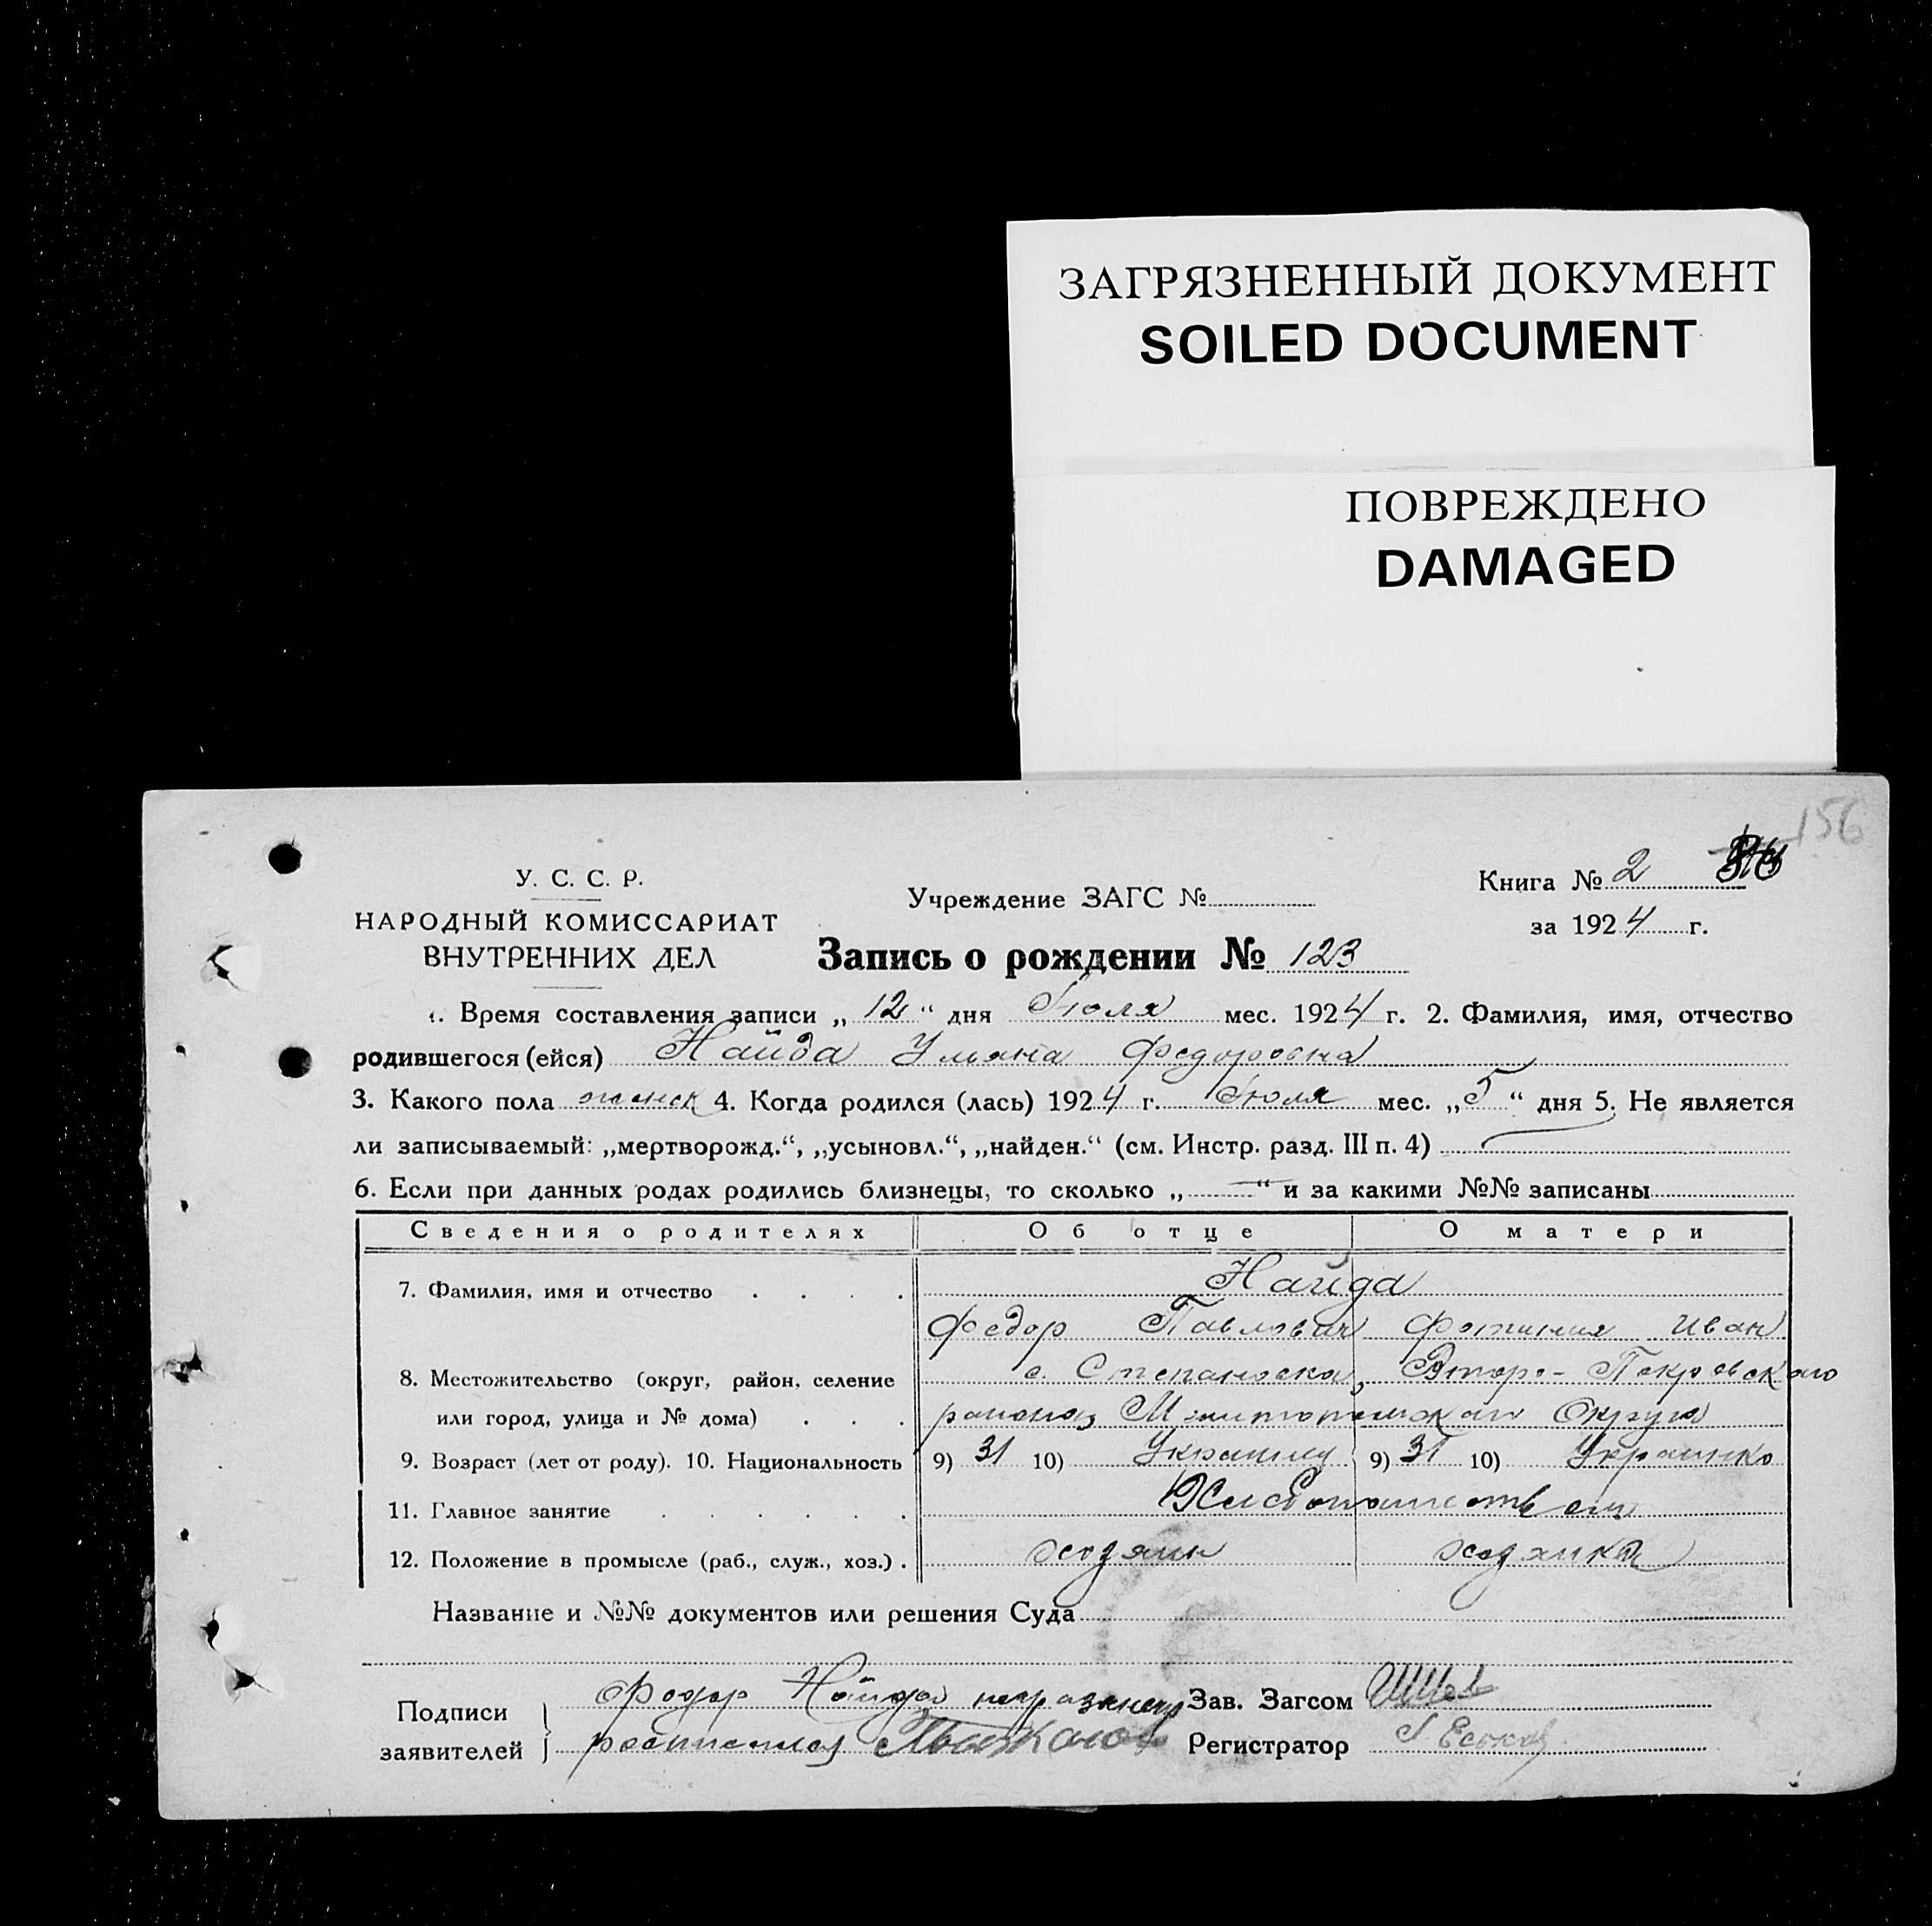 ЗАГРЯЗНЕННЫЙ ДОКУМЕНТ
SOILED DOCUMENT
ПОВРЕЖДЕНО
DAMAGED
156
У. С. С. Р.
НАРОДНЫЙ КОМИССАРИАТ
ВНУТРЕННИХ ДЕЛ
Учреждение ЗАГС №
Книга № 2
за 1924 г.
Запись о рождении № 123
1. Время составления записи „12“ дня Июля мес. 1924 г. 2. Фамилия, имя, отчество
родившегося (ейся) Найда Ульяна Федоровна
3. Какого пола женск 4. Когда родился (лась) 1924 г. Июля мес. „5“ дня 5. Не является
ли записываемый: „мертворожд.“, „усыновл.“, „найден.“ (см. Инстр. разд. III п. 4)
6. Если при данных родах родились близнецы, то сколько „—“ и за какими №№ записаны
Сведения о родителях Об отце О матери
7. Фамилия, имя и отчество Найда
Федор Павлович Фотиния Иван
8. Местожительство (округ, район, селение с. Степановка, Второ-Покровского
или город, улица и № дома) района, Округа
9. Возраст (лет от роду). 10. Национальность 9) 31 10) Украинец 9) 31 10) Украинка
11. Главное занятие Хлебопашеством
12. Положение в промысле (раб., служ., хоз.) хозяин хозяйка
Название и №№ документов или решения Суда
Подписи заявителей
Федор Найда неграмотный
расписался
Зав. Загсом
Регистратор